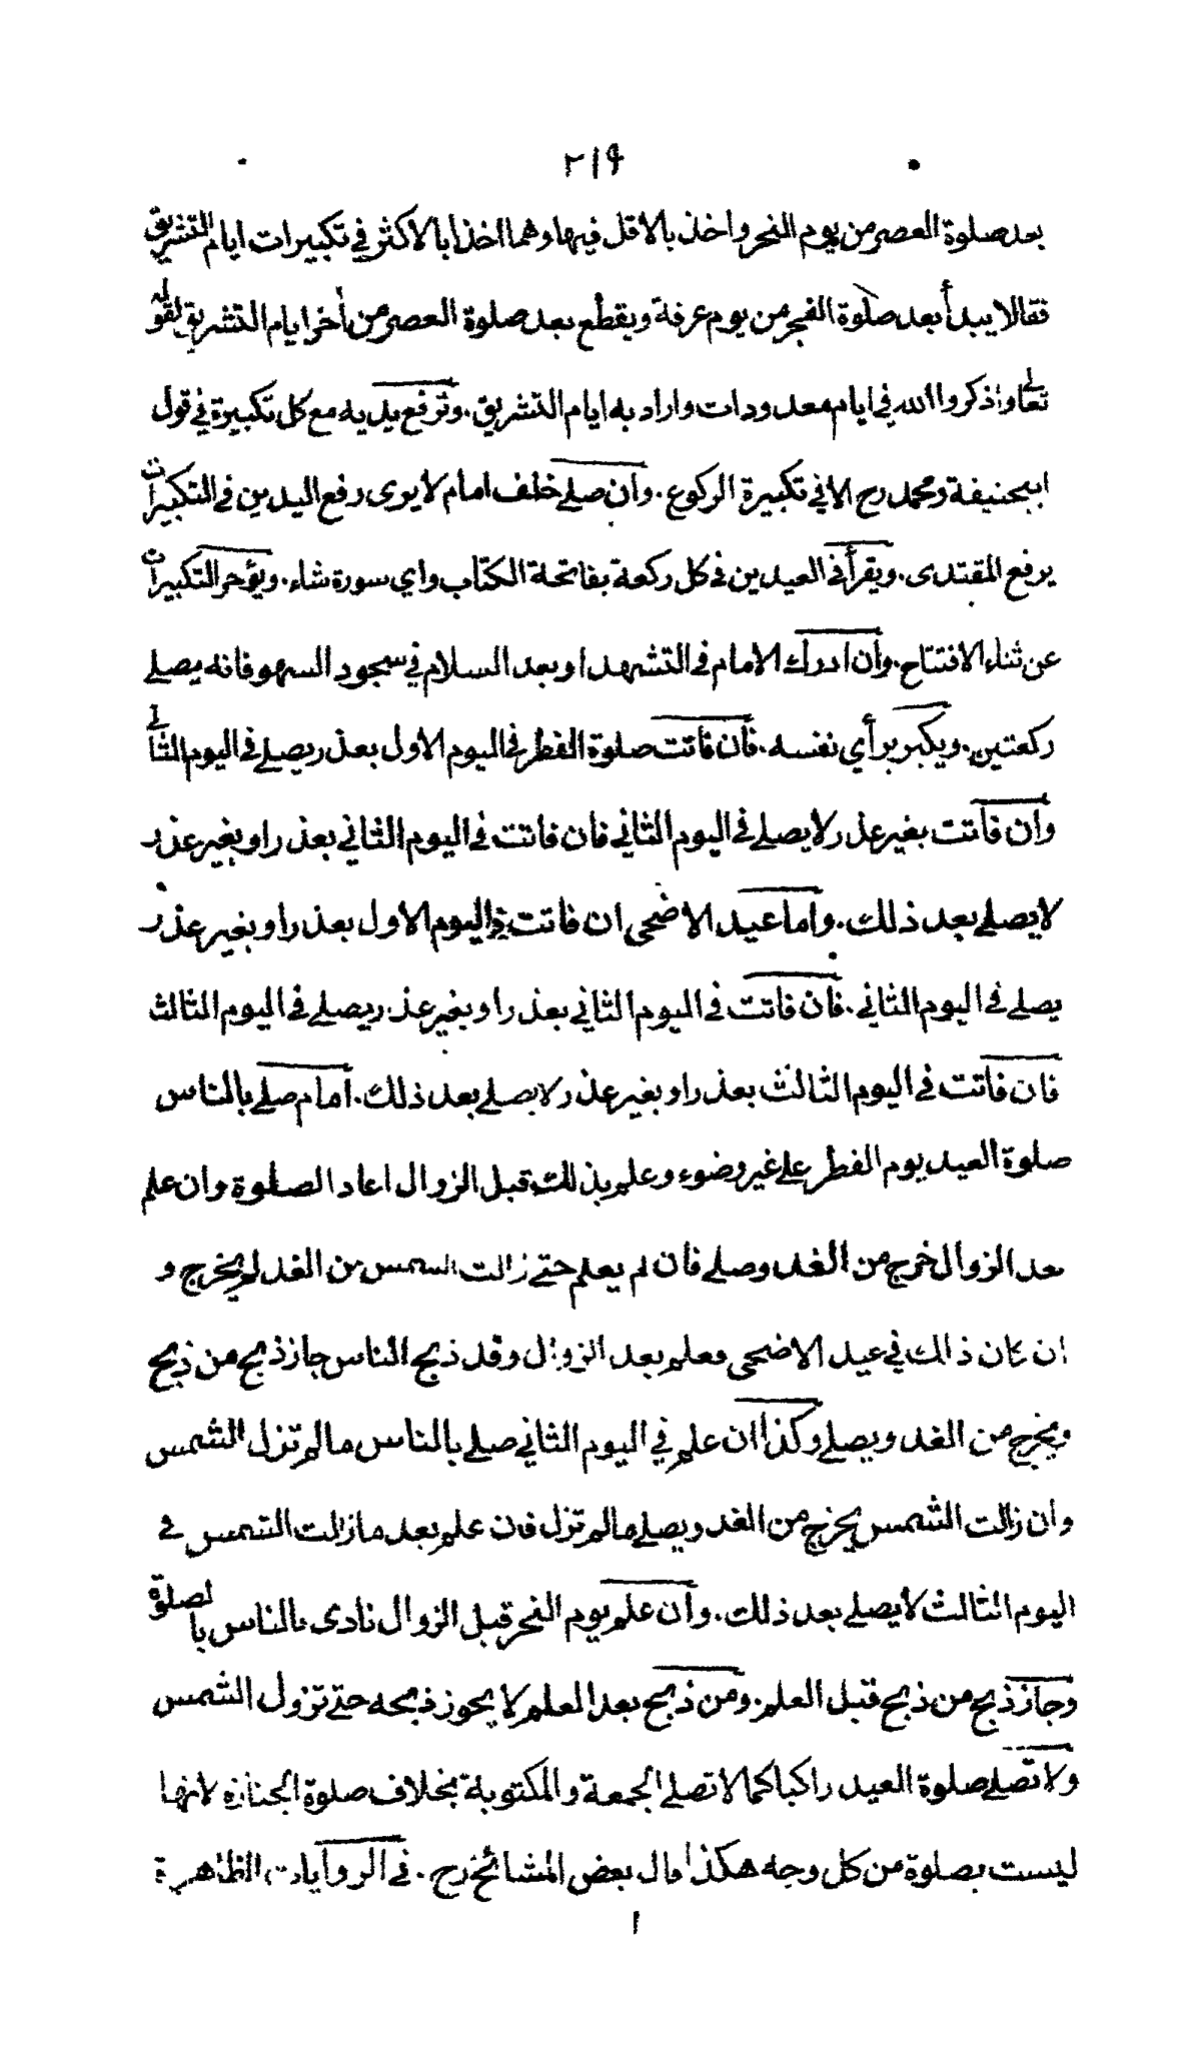 ٢١٩
بعد صلوة العصر من يوم النحر واخذ بالاقل فيها وهما اخذا بالاكثر في تكبيرات ايام التشريق
فقالا يبدأ بعد صلوة الفجر من يوم عرفة ويقطع بعد صلوة العصر من أخر ايام التشريق لقوله
تعالى واذكروا الله في ايام معدودات واراد به ايام التشريق. وترفع يديه مع كل تكبيرة في قول
ابيحنيفة ومحمد رح الا في تكبيرة الركوع. وان صلى خلف امام لا يرى رفع اليدين في التكبيرات
يرفع المقتدى. ويقرأ في العيدين في كل ركعة بفاتحة الكتاب واي سورة شاء. ويؤخر التكبيرات
عن ثناء الافتتاح. وان ادرك الامام في التشهد او بعد السلام في سجود السهو فانه يصلي
ركعتين. ويكبر برأي نفسه. فان فاتت صلوة الفطر في اليوم الاول بعذر يصلي في اليوم الثاني
وان فاتت بغير عذر لا يصلي في اليوم الثاني فان فاتت في اليوم الثاني بعذر او بغير عذر
لا يصلي بعد ذلك. واما عيد الاضحى ان فاتت في اليوم الاول بعذر او بغير عذر
يصلي في اليوم الثاني. فان فاتت في اليوم الثاني بعذر او بغير عذر يصلي في اليوم الثالث
فان فاتت في اليوم الثالث بعذر او بغير عذر لا يصلي بعد ذلك. امام صلى بالناس
صلوة العيد يوم الفطر على غير وضوء وعلم بذلك قبل الزوال اعاد الصلوة وان علم
بعد الزوال خرج من الغد وصلى فان لم يعلم حتى زالت الشمس من الغد لم يخرج و
ان كان ذلك في عيد الاضحى فعلم بعد الزوال وقد ذبح الناس جاز ذبح من ذبح
ويخرج من الغد ويصلي وكذا ان علم في اليوم الثاني صلى بالناس ما لم تزل الشمس
وان زالت الشمس يخرج من الغد ويصلي ما لم تزل فان علم بعد ما زالت الشمس في
اليوم الثالث لا يصلي بعد ذلك. وان علم يوم النحر قبل الزوال نادى بالناس بالصلوة
وجاز ذبح من ذبح قبل العلم. ومن ذبح بعد العلم لا يجوز ذبحه حتى تزول الشمس
ولا تصلى صلوة العيد راكبا كما لا تصلى الجمعة والمكتوبة بخلاف صلوة الجنازة لانها
ليست بصلوة من كل وجه هكذا قال بعض المشائخ رح. في الروايات الظاهرة
ا